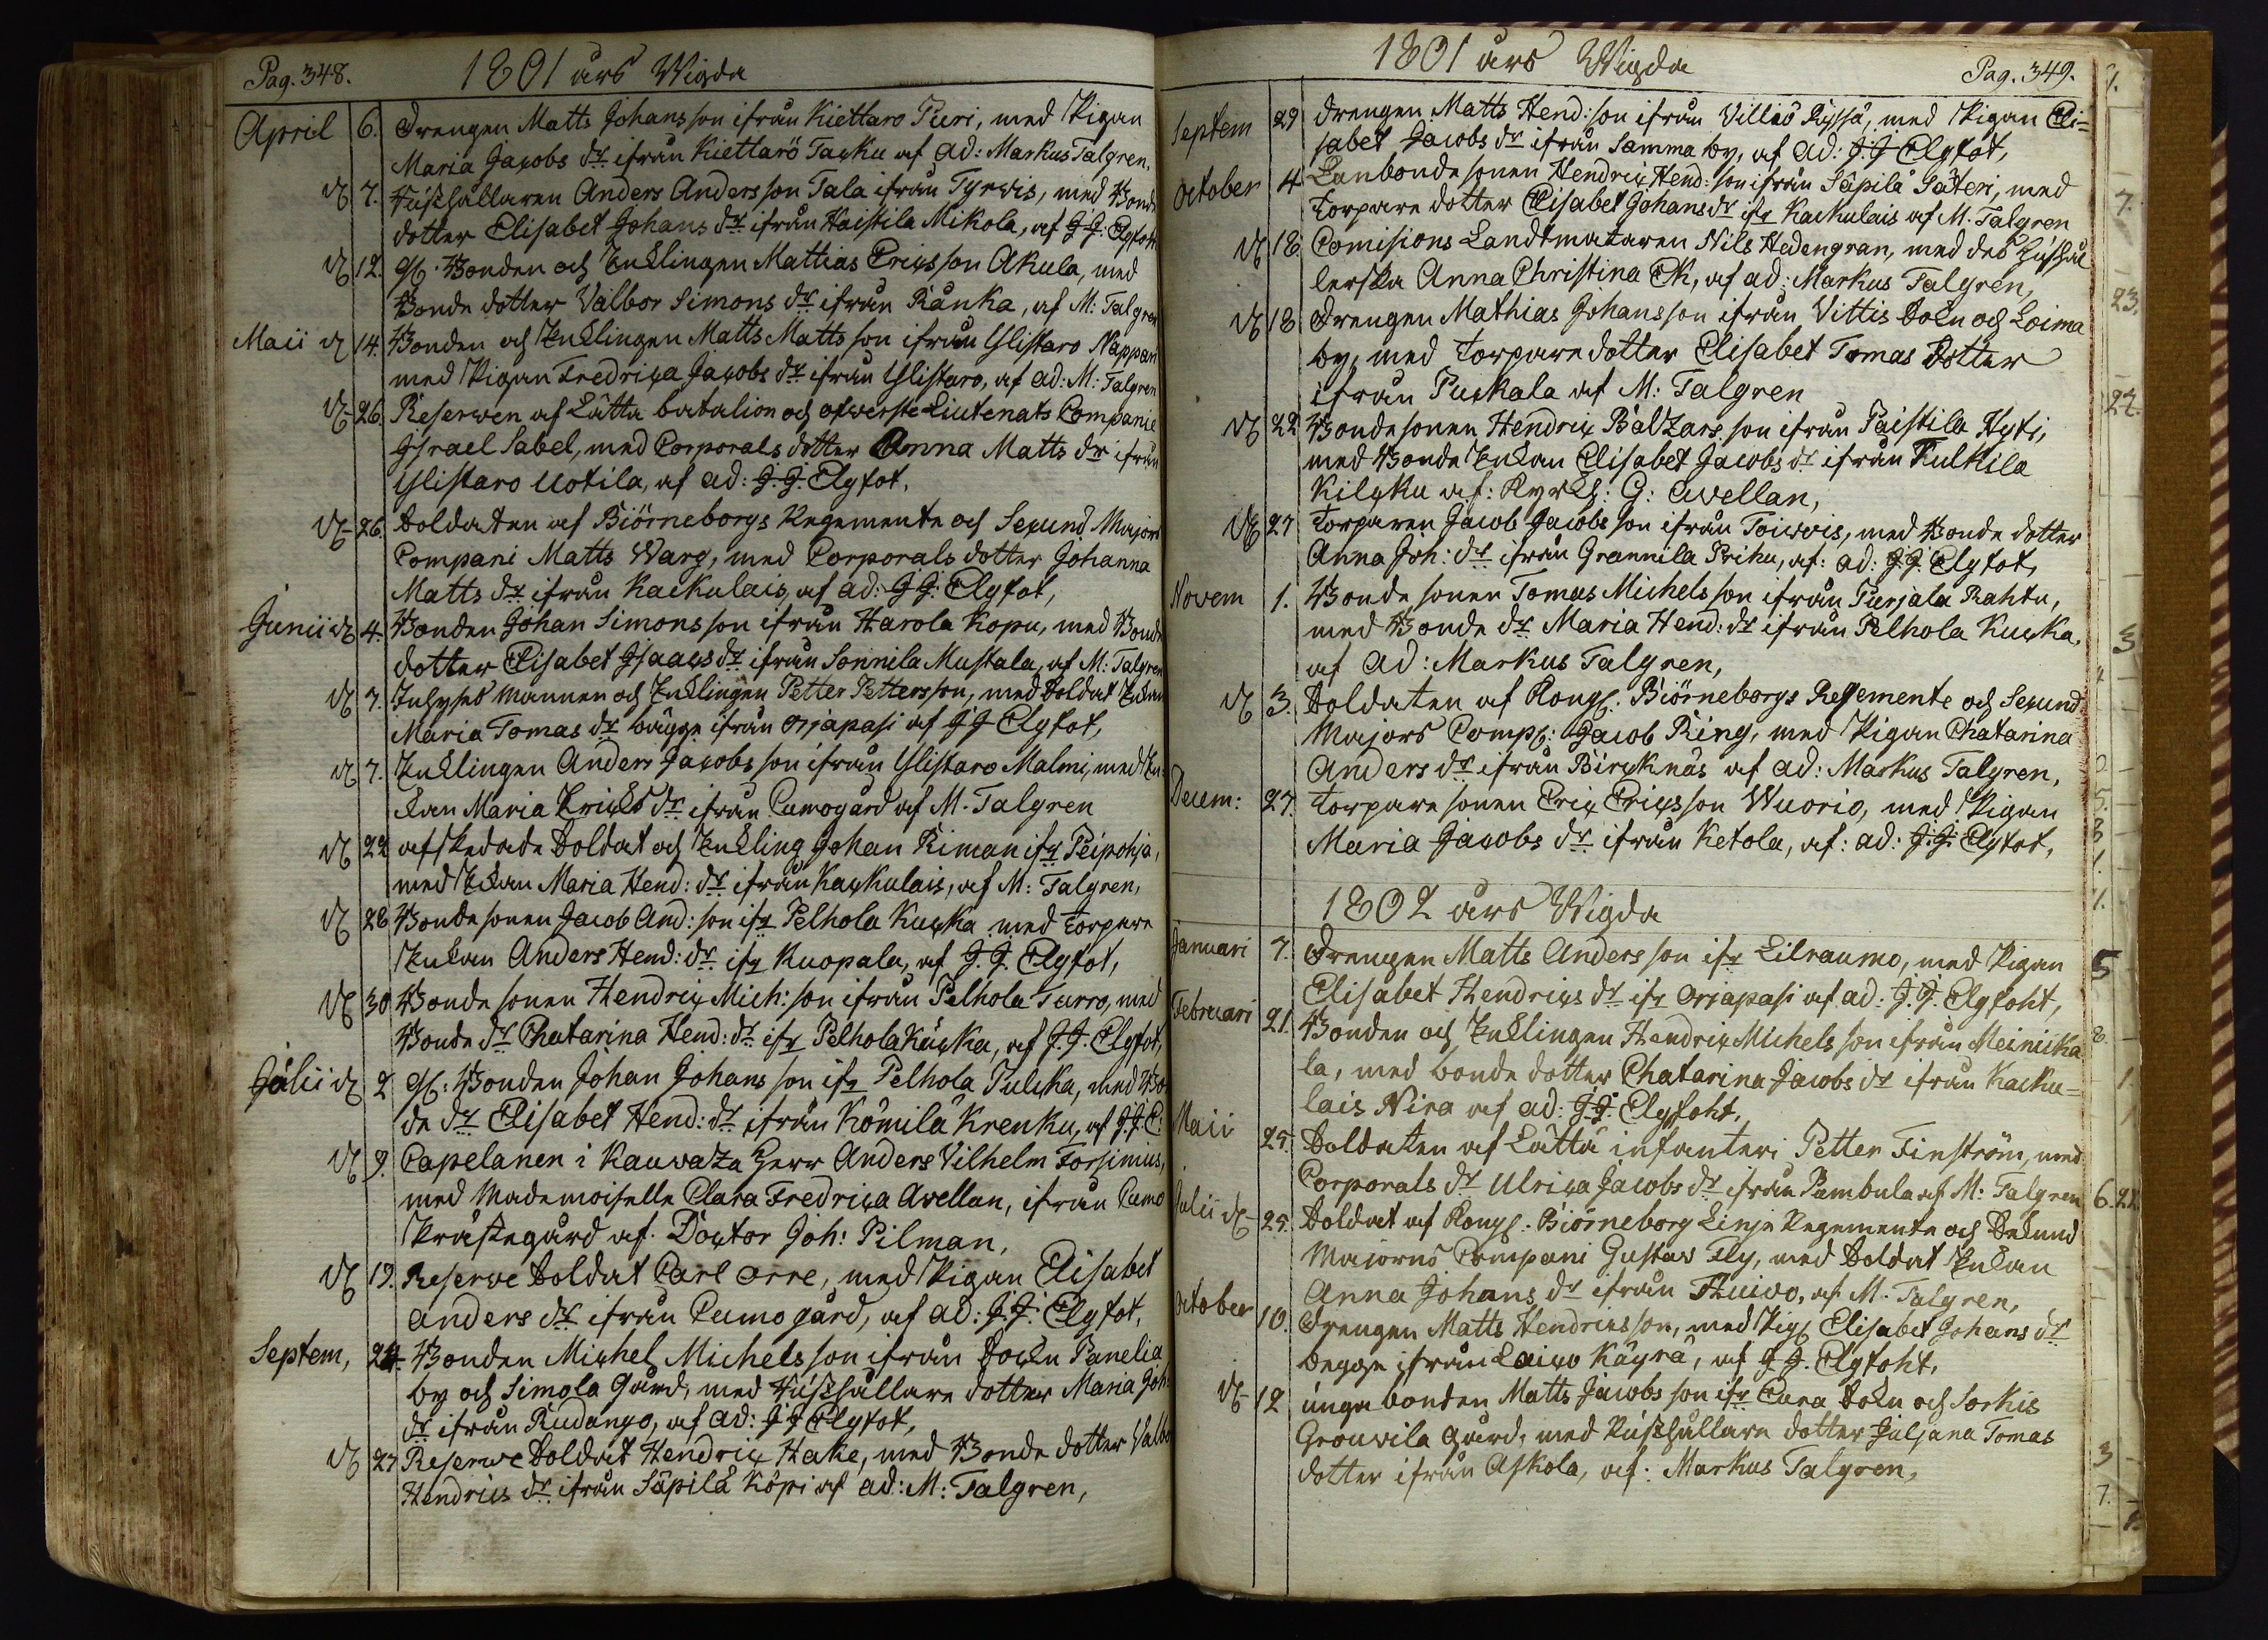 Pag. 348.
1801 års Wigda
April 6. Drengen Matts Johans son ifrån Kiettaro Piri, med Pigan
Maria Jacobs dr ifrån Kiettarö Tacku af Ad: Markus Talgren,
d 7. Husshållaren Anders Anders son Tala ifrån Tyrvis, med Bonde
dotter Elisabet Johans dr ifrån Haistila Mikola, af J J: Elgfot
d 12. gl. Bonden och Enklingen Mattias Erics son Akula, med
Bonde dotter Valbor Simons dr ifrån Rånka, af M: Talgren
Maii d 14. Bonden och Enklingen Matts Matts son ifrån Ylistaro Nappari
med Pigan Fredrica Jacobs dr ifrån Ylistaro, af ad: M: Talgren
d 26. Reserven af Lätta batalion och ofwerste Liutenats Companie
Israel Sabel, med Corporals dotter Anna Matts dr ifrån
Ylistaro Uotila, af ad: J. J. Elgfot,
d 26. Soldaten af Biörneborgs Regemente och Secund Majors
Compani Matts Warg, med Corporals dotter Johanna
Matts dr ifrån Kackulais, af ad: J J: Elgfot,
Junii d 4. Bonden Johan Simons son ifrån Harola Kopu, med Bonde
dotter Elisabet Isaacs dr ifrån Sonnila Mustala, af M: Talgren
d 7. Inhyses mannen och Enklingen Petter Petters son, med Soldat Enkan
Maria Tomas dr bägge ifrån Orjapasi af J J Elgfot,
d 7. Enklingen Anders Jacobs son ifrån Ylistaro Malmi, med En-
kan Maria Erichs dr ifrån Cumogård af M. Talgren
d 22 afskedade Soldat och Enkling Johan Riman ifr Peipohja,
med Enkan Maria Hend: dr ifrån Kackulais, af M: Talgren,
d 28 Bonde sonen Jacob And: son ifr Pelhola Kucka med Torpare
Enkan Anders Hend: dr ifr Kuopala, af J. J. Elgfot,
d 30 Bonde sonen Hendric Mich: son ifrån Pelhola Turro, med
Bonde dr Chatarina Hend: dr ifr Pelhola Kucka, af J. J. Elgfot,
Julii d 2 gl: Bonden Johan Johans son ifr Pelhola Julcka, med Bon
de dr Elisabet Hend: dr ifrån Kömilä Krenku, af J J. E.
d 9. Capelanen i Kauvaza Herr Anders Vilhelm Forsimus,
med Mademoiselle Clara Fredrica Avellan, ifrån Cumo
Prästegård af. Doctor Joh: Pilman,
d 19. Reserve Soldat Carl Orre, med Pigan Elisabet
Anders dr ifrån Cumo gård, af ad: J. J. Elgfot,
Septem, 24. Bonden Michel Michels son ifrån Sockn Panelia
by och Simola Gård, med Husshållare dotter Maria Joh:
dr ifrån Rudango, af ad: J J Elgfot,
d 27 Reserve Soldat Hendric Hake, med Bonde dotter Valbo
Hendrics dr ifrån Säpilä Köpi af ad: M: Talgren,
1801 års Wigda
Pag. 349.
Septem 29 Drengen Matts Hend: son ifrån Villiö Ryssä, med Pigan Eli=
sabet Jacobs dr ifrån Samma by, af ad: J. J Elgfot,
October 4 Lanbonde sonen Hendric Hend: son ifrån Säpilä Säteri, med
Torpare dotter Elisabet Johans dr ifr Kackulais af M. Talgren
d 18. Comisions Landtmätaren Nils Hedengran, med des Hushål
lerska Anna Christina Ek, af ad: Markus Talgren,
d 18 Drengen Mathias Johans son ifrån Vittis Sokn och Loima
by, med Torpare dotter Elisabet Tomas Dotter
ifrån Puckala af M: Talgren
d 22 Bonde sonen Hendric Baltzars son ifrån Paistila Hyti,
med Bonde Enkan Elisabet Jacobs dr ifrån Kulkila
Kilcku af: Kyrkh: G: Avellan,
d 27 Torparen Jacob Jacobs son ifrån Toiwis, med Bonde dotter
Anna Joh: dr ifrån Grannila Prihu, af: ad: J. J. Elgfot,
Novem 1. Bonde sonen Tomas Michels son ifrån Purjala Rahtu,
med Bonde dr Maria Hend: dr ifrån Pelhola Kucka,
af Ad: Markus Talgren,
d 3. Soldaten af Kongl. Biörneborgs Regemente och Secund
Majors Comp: Jacob Ring, med Pigan Chatarina
Anders dr ifrån Bircknäs af ad: Markus Talgren,
Decem: 27. Torpare sonen Eric Erics son Wuorio, med Pigan
Maria Jacobs dr ifrån Ketola, af: ad: J: J: Elgfot,
1802 års Wigda
Januari 7. Drengen Matts Anders son ifr Lilraumo, med Pigan
Elisabet Hendrics dr ifr Orjapasi af ad: J. J. Elgfoht,
Februari 21. Bonden och Enklingen Hendric Michels son ifrån Meinicka
la, med bonde dotter Chatarina Jacobs dr ifrån Kacku=
lais Nira af ad: J. J. Elgfoht,
Maii 25. Soldaten af Lätta infanteri Petter Finström, med
Corporals dr Ulrica Jacobs dr ifrån Pambula af M: Talgren
Julii d 25. Soldat af Kongl. Biörneborg Linje Regemente och Sekund
Majorns Compani Gustav Fly, med Soldat Enkan
Anna Johans dr ifrån Thuivo, af M. Talgren,
October 10. Drengen Matts Hendrics son, med Pig Elisabet Johans dr
begge ifrån Laico Käyrä, af J J. Elgfoht,
d 12 unga bonden Matts Jacobs son ifr Eura Sokn och Sorkis
Grouvila gård, med Husshållare dotter Juljana Tomas
dotter ifrån Askola, af: Markus Talgren,